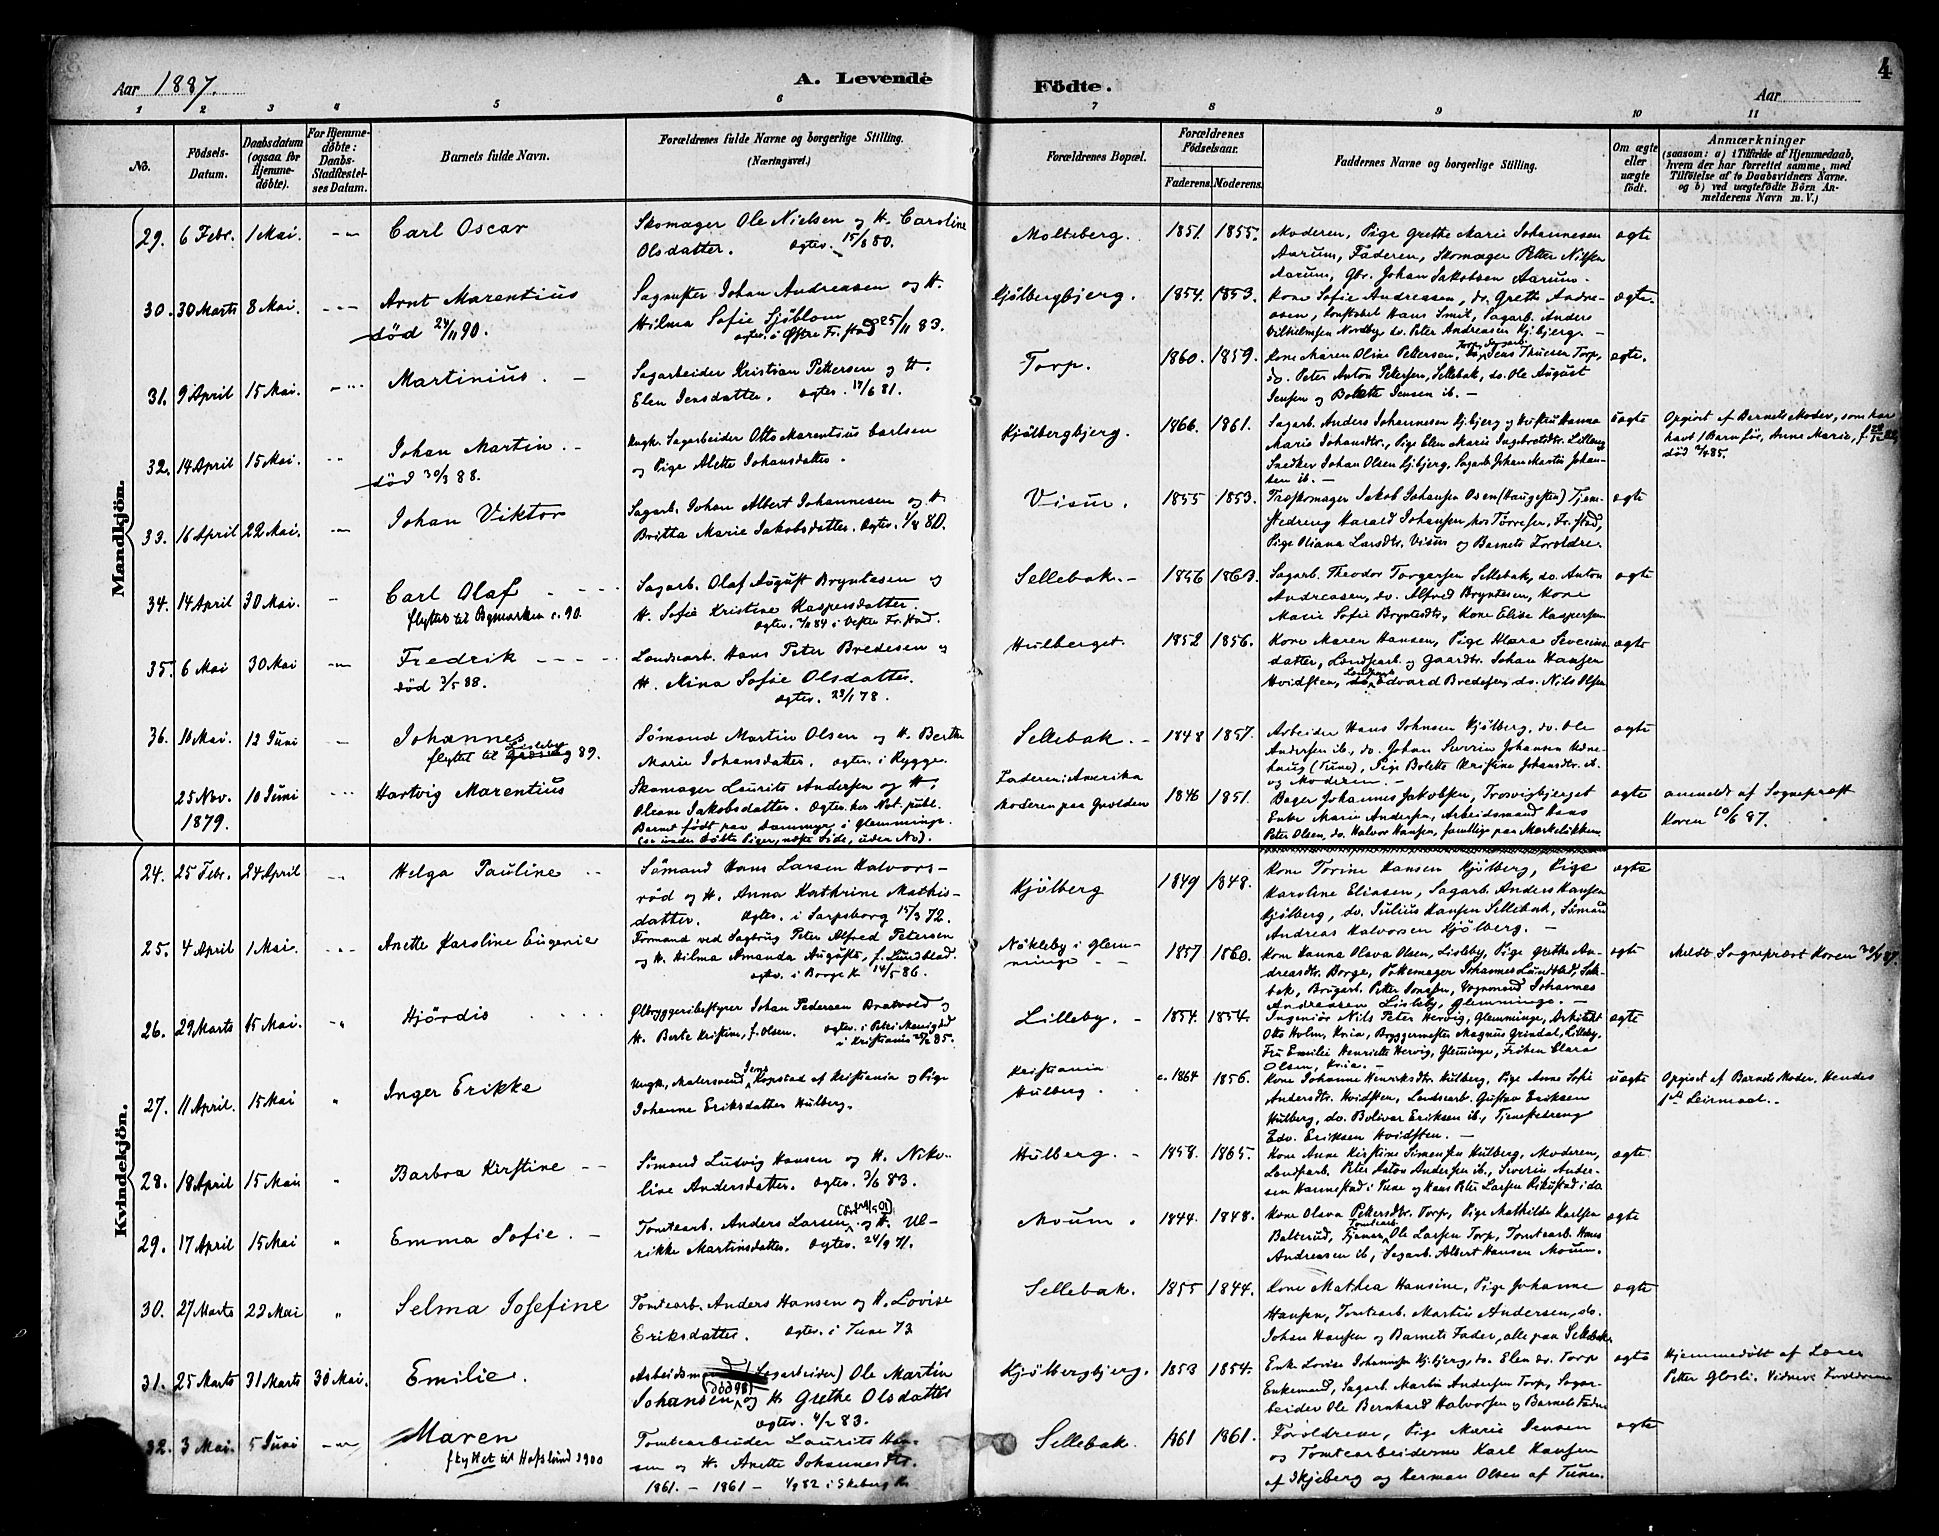 Aar 1887.
A. Levende
Födte.
4
Aar
1 2 3 4 5 6 7 8 9 10 11
No.
Födsels-
Datum.
Daabsdatum
(ogsaa for
Hjemme-
döbte).
For Hjemme-
döbte:
Daabs-
Stadfæstel-
ses Datum.
Barnets fulde Navn.
Forældrenes fulde Navne og borgerlige Stilling.
(Næringsvei.)
Forældrenes Bopæl.
Forældrenes
Födselsaar.
Faderens. Moderens.
Faddernes Navne og borgerlige Stilling.
Om ægte
eller
uægte
födt.
Anmærkninger
(saasom: a) i Tilfælde af Hjemmedaab,
hvem der har forrettet samme, med
Tilföielse af to Daabsvidners Navne.
og b) ved uægtefödte Börn An-
melderens Navn m. V.)
Mandkjön.
29. 6 Febr. 1 Mai. Carl Oscar
Skomager Ole Nielsen og H. Caroline
Olsdatter. Ægtev. 15/6 80.
Molteberg. 1851. 1855.
Moderen, Pige Grethe Marie Johannesen
Aarum, Faderen, Skomager Petter Nilsen
Aarum, Gbr. Johan Jakobsen Aarum.
ægte
30. 30 Marts 8 Mai. Arnt Marentius
död 24/11 90.
Sagmester Johan Andreasen og H.
Hilma Sofie Sjöblom
ægtev. i Østre Fr.stad 25/11 83.
Kjölbergbjerg. 1854. 1853.
Kone Sofie Andreasen, do. Grethe Andre-
asen, Hans Smit, Sagarb. Anders
Vilhelmsen Nordby do. Peter Andreasen Kj.bjerg. —
ægte.
31. 9 April 15 Mai. Martinius. —
Sagarbeider Kristian Pettersen og H.
Elen Jensdatter. Ægtev. 17/6 81.
Torp. 1860. 1859.
Kone Maren Oline Pettersen, Torp, Sagarb. Jens Thuesen Torp,
do. Peter Anton Pettersen, Sellebak, do. Ole August
Jensen og Bolette Jensen ib. —
ægte.
32. 14 April 15 Mai. Johan Martin. —
död 30/3 88.
Ungk. Sagarbeider Otto Marentius Carlsen
og Pige Alette Johansdatter.
Kjölbergbjerg. 1866. 1861.
Sagarb. Anders Johannesen Kj.bjerg og Hustru Hanna
Marie Johansdtr., Pige Elen Marie
Snedker Johan Olsen Kj.bjerg, Sagarb. Johan Martin Johan-
sen ib. —
uægte
Opgivet af Barnets Moder, som har
havt 1 Barn før, Anne Marie,
död 85.
33. 16 April 22 Mai. Johan Viktor
Sagarb. Johan Albert Johannesen og H.
Britta Marie Jakobsdatter. Ægtev. 80.
Visur. 1855 1853.
Træskomager Jakob Johansen Osen (Haugesten) Tjene-
stedreng Harald Johansen, hos Torresen, Fr.stad,
Pige Oliana Larsdtr. Visur og Barnets Forældre.
ægte
34. 14 April 30 Mai. Carl Olaf
flyttet til Bymarken c. 90.
Sagarb. Olaf August Bryntesen og
H. Sofie Kristine Kaspersdatter.
Ægtev. 84 i Vestre Fr.stad.
Sellebak. — 1856 1863.
Sagarb. Theodor Torgersen Sellebak, do. Anton
Andreasen, do. Alfred Bryntesen, Kone
Marie Sofie Bryntesdtr, Kone Elise Kaspersen
ægte
35. 6 Mai 30 Mai Fredrik
död 3/5 88.
Landsearb. Hans Peter Bredesen og
H. Nina Sofie Olsdatter.
ægtev. 28/1 78.
Hulberget. 1852 1856.
Kone Maren Hansen, Pige Klara Severins-
datter, og Gaardbr. Johan Hansen
Hvidsten, Edvard Bredesen, do. Nils Olsen
ægte
36. 10 Mai. 12 Juni Johannes
flyttet til Lisleby 89.
Sömand Martin Olsen og H. Berthe
Marie Johansdatter, ægtev. i Rygge.
Sellebak. — 1848 1857.
Arbeider Hans Johnsen Kjölberg, do. Ole
Andersen ib., do. Johan Severin Johansen Hedne-
haug (Tune), Pige Bolette Kristine Johansdtr. ib.
og Moderen. —
ægte
25 Nov.
1879. 10 Juni Hartvig Marentius
Skomager Laurits Andersen og H.
Oleane Jakobsdatter. Ægtev. hos Not. publ.
Barnet födt paa Dammyr i Glemminge.
(se under döbte Piger, næste Side, uden No).
Faderen i Amerika
Moderen paa Gudeberg 1846 1851.
Bager Johannes Jakobsen, Trosvigbjerget
Enke Marie Andersen, Arbeidsmand Hans
Peter Olsen, do. Halvor Hansen, samtlige paa
ægte
anmeldt af Sogneprest
Koren 10/6 87.
Kvindekjön.
24. 25 Febr. 24 April Helga Pauline
Sömand Hans Larsen Halvors-
röd og H. Anna Kathrine Mathis-
datter. Ægtev. i Sarpsborg 15/3 72.
Kjölberg 1849 1848.
Kone Torine Hansen Kjölberg, Pige
Karoline Eliasen, Sagarb. Anders Hansen
Kjölberg, do. Julius Hansen Sellebak, Sömand
Andreas Halvorsen Kjölberg. —
ægte
25. 4 April 1 Mai. Anette Karoline Eugenie
Formand ved Sagbrug Peter Alfred Petersen
og H. Hilma Amanda Auguste, f. Lundblad.
ægtev. i Borge K. 14/5 86.
Nökleby i Glem-
minge 1857 1860.
Kone Hanna Olava Olsen, Lisleby, Pige Grethe An-
dreasdtr. Borge, Johannes Lundblad, Selle-
bak, Brugarb. Petter Jonsen, Johannes
Andreassen Lisleby, Glemminge. —
ægte
Meldt Sogneprest Koren 30/4 87.
26. 29 Marts 15 Mai. Hjördis
Ølbryggeribestyrer Johan Pedersen Bratvold og
H. Berte Kristine, f. Olsen. Ægtev. i Petri Menighed
i Kristiania 85.
Lilleby. — 1854. 1854.
Ingeniör Nils Peter Hervig, Glemminge, Arkitekt
Otto Holm, Kria, Bryggermester Magnus Grindal, Lilleby,
Fru Emilie Henriette Hervig, Glemminge, Fröken Clara
Olsen, Kria. —
ægte
27. 11 April. 15 Mai Inger Erikke
Ungk. Malersvend Jens Kopstad af Kristiania og Pige
Johanne Eriksdatter Hulberg.
Kristiania
Hulberg. c. 1864 1856.
Kone Johanne Henriksdtr. Hulberg, Pige Anne Sofie
Andersdtr. Hvidsten, Landsearb. Gustav Eriksen
Hulberg, do. Bolivar Eriksen ib., Tjenestedreng
Edv. Eriksen Hvidsten. —
uægte
Opgivet af Barnets Moder. Hendes
1ste Leiermaal. —
28. 18 April 15 Mai Barbra Kirstine —
Sömand Ludvig Hansen og H. Niko-
line Andersdatter. Ægtev. 3/6 83.
Hulberg. — 1858. 1865.
Kone Anne Kirstine Simensen Hulberg, Moderen,
Peter Anton Andersen ib., Severin Ander-
sen Hannestad i Tune og Hans Peter Larsen Rikustad i do
ægte
29. 17 April 15 Mai Emma Sofie. —
Tomtearb. Anders Larsen og H. Ul-
rikke Martinsdatter. Ægtev. 24/9 71.
Moum. 1844. 1848.
Kone Olava Pettersdtr. Torp, Pige Mathilde Karlsen
Balterud, Tomtearb. Ole Larsen Torp, Tomtearb. Hans
Andreasen ib., Sagarb. Albert Hansen Moum.
ægte
30. 27 Marts 22 Mai Selma Josefine
Tomtearb. Anders Hansen og H. Lovise
Eriksdatter. Ægtev. i Tune 73
Sellebak. 1855 1844.
Kone Mathea Hansine, Pige Johanne
Hansen, Tomtearb. Martin Andersen, do.
Johan Hansen og Barnets Fader, alle paa Sellebak.
ægte
31. 25 Marts 31 Marts 30 Mai. Emilie.
Arbeidsmand (Sagarbeider) Ole Martin
Johansen (död 98) og H. Grethe Olsdatter
ægtev. 4/2 83.
Kjölbergbjerg. 1853 1854.
Enke Lovise Johannesen Kj.bjerg, do. Elen do. Torp
Enkemand, Sagarb. Martin Andersen Torp, Sagar-
beider Ole Bernhard Halvorsen og Barnets Fader
ægte
Hjemmedöbt af Lærer
Petter Glosli. Vidner: Forældrene
32. 3 Mai. 5 Juni Maren
flyttet til Hafslund 1900
Tomtearbeider Laurits Han-
sen og H. Anette Johannesdtr.
1861. — 1861 — 4/2 82 i Skeberg K.
Sellebak. 1861 1861.
Forældrene, Pige Marie Jensen
og Tomtearbeiderne Karl Hansen
af Skjeberg og Herman Olsen af Tune.
ægte